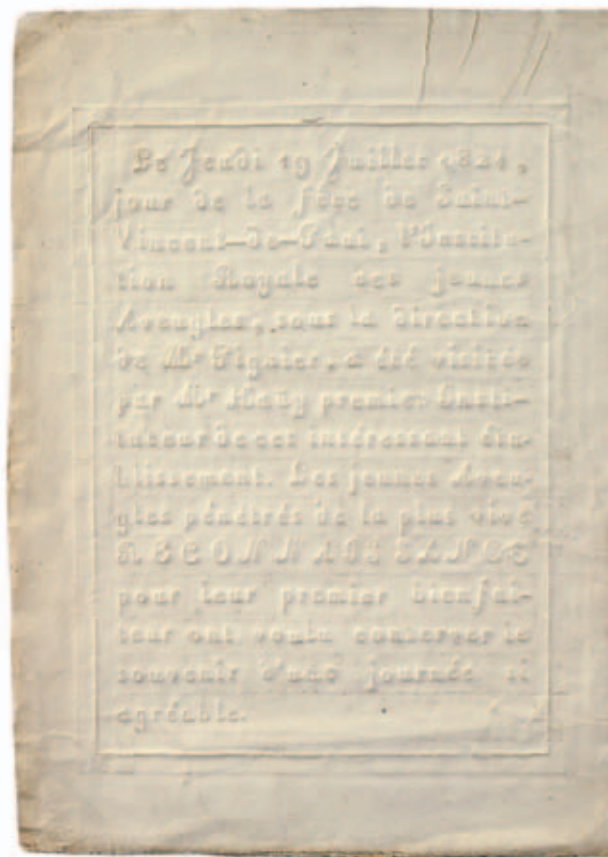 Le Jeudi 19 Juillet 1821,
jour de la fête de Saint-
Vincent-de-Paul, l'Institu-
tion Royale des jeunes
Aveugles, sous la directive
de Mr Pignier, a été visitée
par Mr Haüy premier Insti-
tuteur de cet intéressant éta-
blissement. Les jeunes Aveu-
gles pénétrés de la plus vive
RECONNAISSANCE
pour leur premier bienfai-
teur ont voulu conserver le
souvenir d'une journée si
agréable.